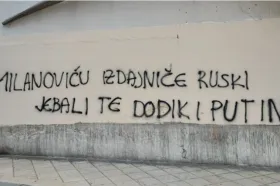 MILANOVIĆU IZDAJNIČE RUSKI
JEBALI TE DODIK I PUTIN